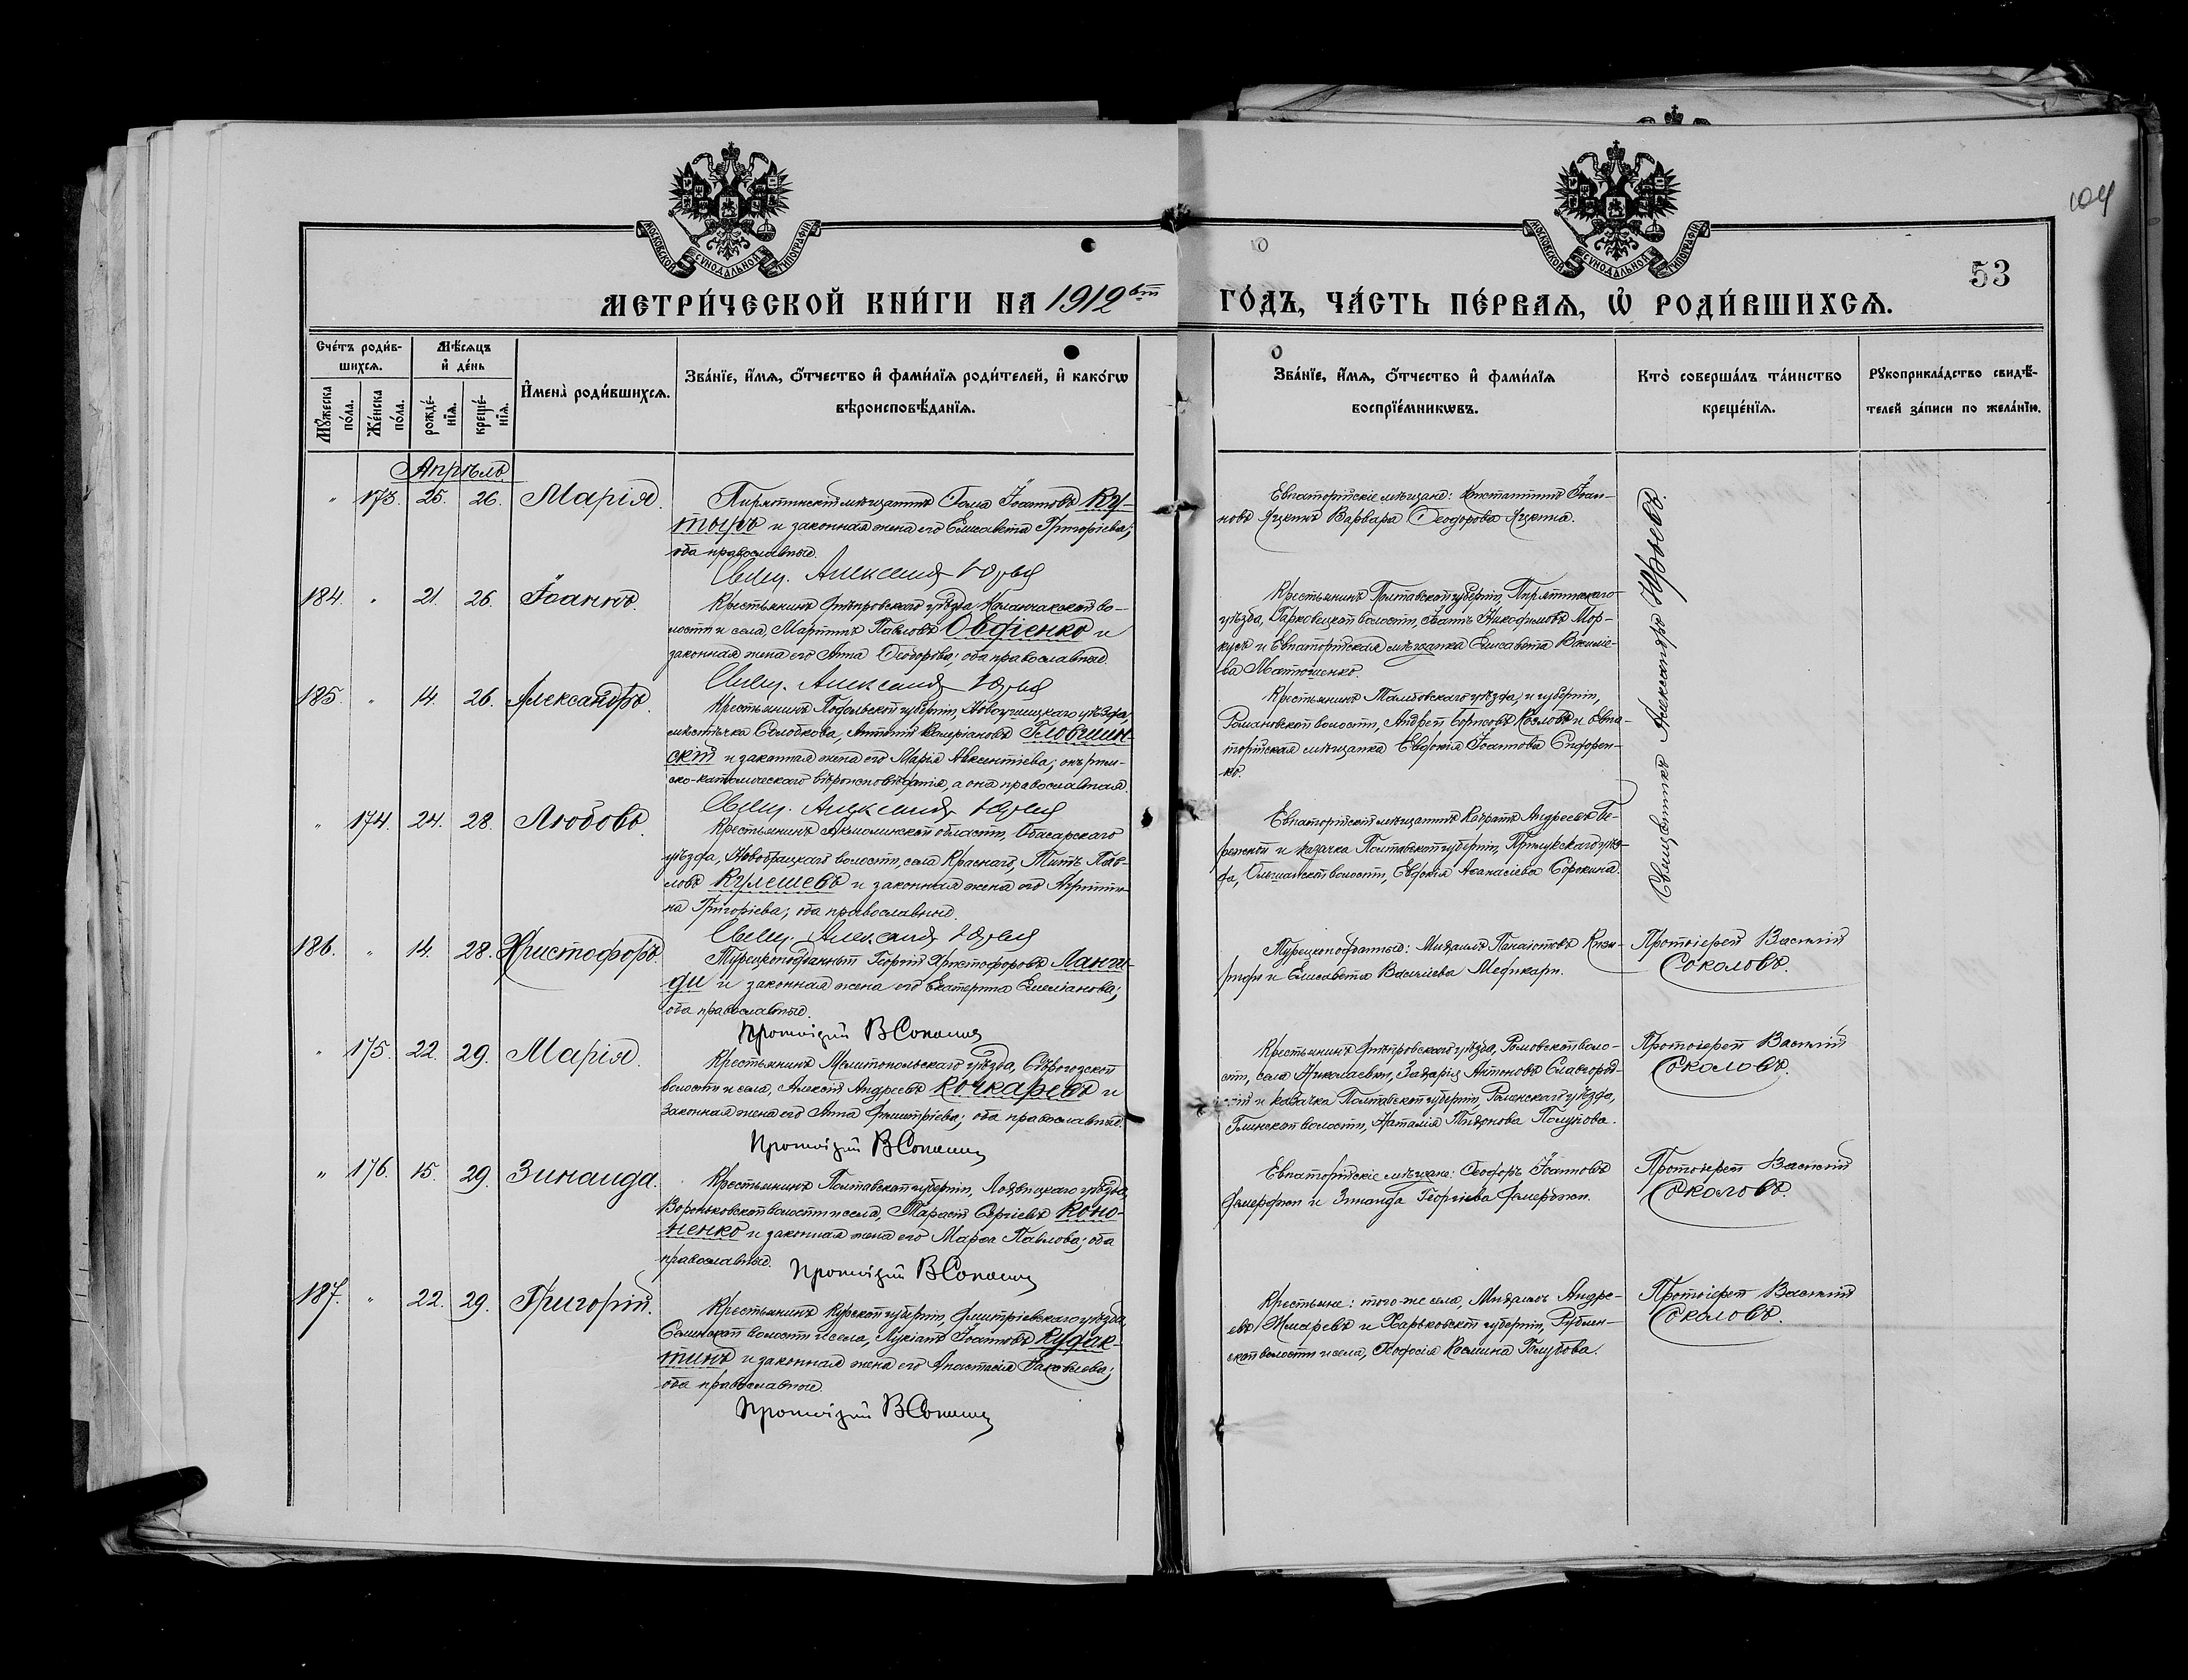 104
53
МОСКОВСКОЙ СѴНОДАЛЬНОЙ ТИПОГРАФІИ
МОСКОВСКОЙ СѴНОДАЛЬНОЙ ТИПОГРАФІИ
МЕТРИ́ЧЕСКОЙ КНИ́ГИ НА 1912 ГО́ДЪ, ЧА́СТЬ ПЕ́РВАѦ, Ѽ РОДИ́ВШИХСѦ.
Сче́тъ роди́в-
шихсѧ.
Мꙋ́жеска
по́ла.
Же́нска
по́ла.
Мѣ́сѧцъ
и҆ де́нь
рожде́-
нїѧ.
креще́-
нїѧ.
И҆мена̀ роди́вшихсѧ.
Зва́нїе, и҆́мѧ, ѻ҆́тчество и҆ фами́лїѧ роди́телей, и҆ како́гѡ
вѣроисповѣ́данїѧ.
Зва́нїе, и҆́мѧ, ѻ҆́тчество и҆ фами́лїѧ
воспрїе́мникѡвъ.
Кто̀ соверша́лъ та́инство
креще́нїѧ.
Рꙋкоприкла́дство свидѣ́-
телей за́писи по жела́нїю.
Апрѣль
" 173. 25. 26. Марія.
Пирятинскій мѣщанинъ Ѳома Іоанновъ Ку-
тыръ и законная жена его Елисавета Григоріева;
оба православные.
Свящ. Александр Юрьев
Евпаторійскіе мѣщане: Константинъ Іоан-
новъ Яценко Варвара Ѳеодорова Яценко.
Священникъ Александръ Юрьевъ.
184. " 21. 26. Іоаннъ.
Крестьянинъ Днѣпровскаго уѣзда, Каланчакской во-
лости и села, Мартинъ Павловъ Овдіенко и
законная жена его Анна Ѳеодорова; оба православные.
Свящ. Александр Юрьев
Крестьянинъ Полтавской губерніи, Пирятинскаго
уѣзда, волости, Іоаннъ Никодимовъ Мор-
кусъ и Евпаторійская мѣщанка Елисавета Василіе-
ва Матюшенко.
185. " 14. 26. Александръ.
Крестьянинъ Подольской губерніи, Новоушицкаго уѣзда,
мѣстечка Солобкова, Антоній Валеріановъ Гловшин-
скій и законная жена его Марія Авксентіева; онъ рим-
ско-католическаго вѣроисповѣданія, а она православная.
Свящ. Александр Юрьев
Крестьянинъ Тамбовскаго уѣзда, и губерніи,
Романовской волости, Андрей Борисовъ Козловъ и Евпа-
торійская мѣщанка Евдокія Іоаннова Сидорен-
ко.
" 174. 24. 28. Любовь.
Крестьянинъ Акмолинской области, Атбасарскаго
уѣзда, волости, села Краснаго, Титъ Пав-
ловъ Кулешевъ и законная жена его Агриппи-
на Григоріева; оба православные.
Свящ. Александр Юрьев
Евпаторійскій мѣщанинъ Кодратъ Андреевъ Бе-
режной и казачка Полтавской губерніи, Прилукскаго уѣз-
да, Ольшанской волости, Евдокія Аѳанасіева Сорокина.
186. " 14. 28. Христофоръ.
Турецкоподданный Георгій Христофоровъ Ланги-
ди и законная жена его Екатерина Емеліанова;
оба православные.
Протоіерей В Соколов
Турецкоподданные: Михаилъ Панаіотовъ
и Елисавета Василіева
Протоіерей Василій
Соколовъ.
" 175. 22. 29. Марія.
Крестьянинъ Мелитопольскаго уѣзда, Сѣрогозской
волости и села, Алексій Андреевъ Кочкаревъ и
законная жена его Анна Димитріева; оба православные.
Протоіерей В Соколов
Крестьянинъ Днѣпровскаго уѣзда, воло-
сти, села Николаевки, Захарія Антоновъ Славгород-
скій и казачка Полтавской губерніи, Роменскаго уѣзда,
Глинской волости, Наталія Тихонова
Протоіерей Василій
Соколовъ.
" 176. 15. 29. Зинаида.
Крестьянинъ Полтавской губерніи, Лохвицкаго уѣзда,
Вороньковской волости и села, Тарасій Сергіевъ Коно-
ненко и законная жена его Марѳа Павлова; оба
православные.
Протоіерей В Соколов
Евпаторійскіе мѣщане: Ѳеодоръ Іоанновъ
Демерджи и Зинаида Георгіева Демерджи.
Протоіерей Василій
Соколовъ.
187. " 22. 29. Григорій.
Крестьянинъ Курской губерніи, Димитріевскаго уѣзда,
волости и села, Лукіанъ Іоанновъ Кудак-
тинъ и законная жена его Анастасія Іаковлева;
оба православные.
Протоіерей В Соколов
Крестьяне: того-же села, Михаилъ Андре-
евъ Жмаревъ и Харьковской губерніи, Рублен-
ской волости и села, Ѳеодосія Космина Голубова.
Протоіерей Василій
Соколовъ.